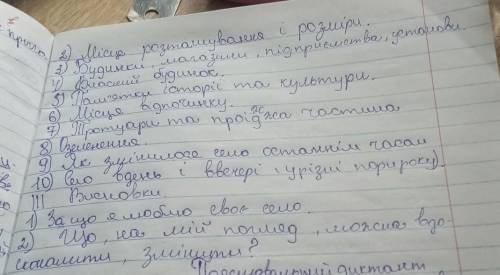 2) Місце розташування і розміри.
3) Будинки, магазини, підприємства, установи.
4) Власний будинок.
5) Пам'ятки історії та культури.
6) Місця відпочинку.
7) Тротуари та проїджа частина
ж
8) Озеленення.
9) Як змінилося село останнім часом
10) Село вдень і ввечері (у різні пори року)
III Висновки.
1) За що я люблю своє село.
2) Що, на мій погляд, можна вдо-
сконалити, змінити?
диктант